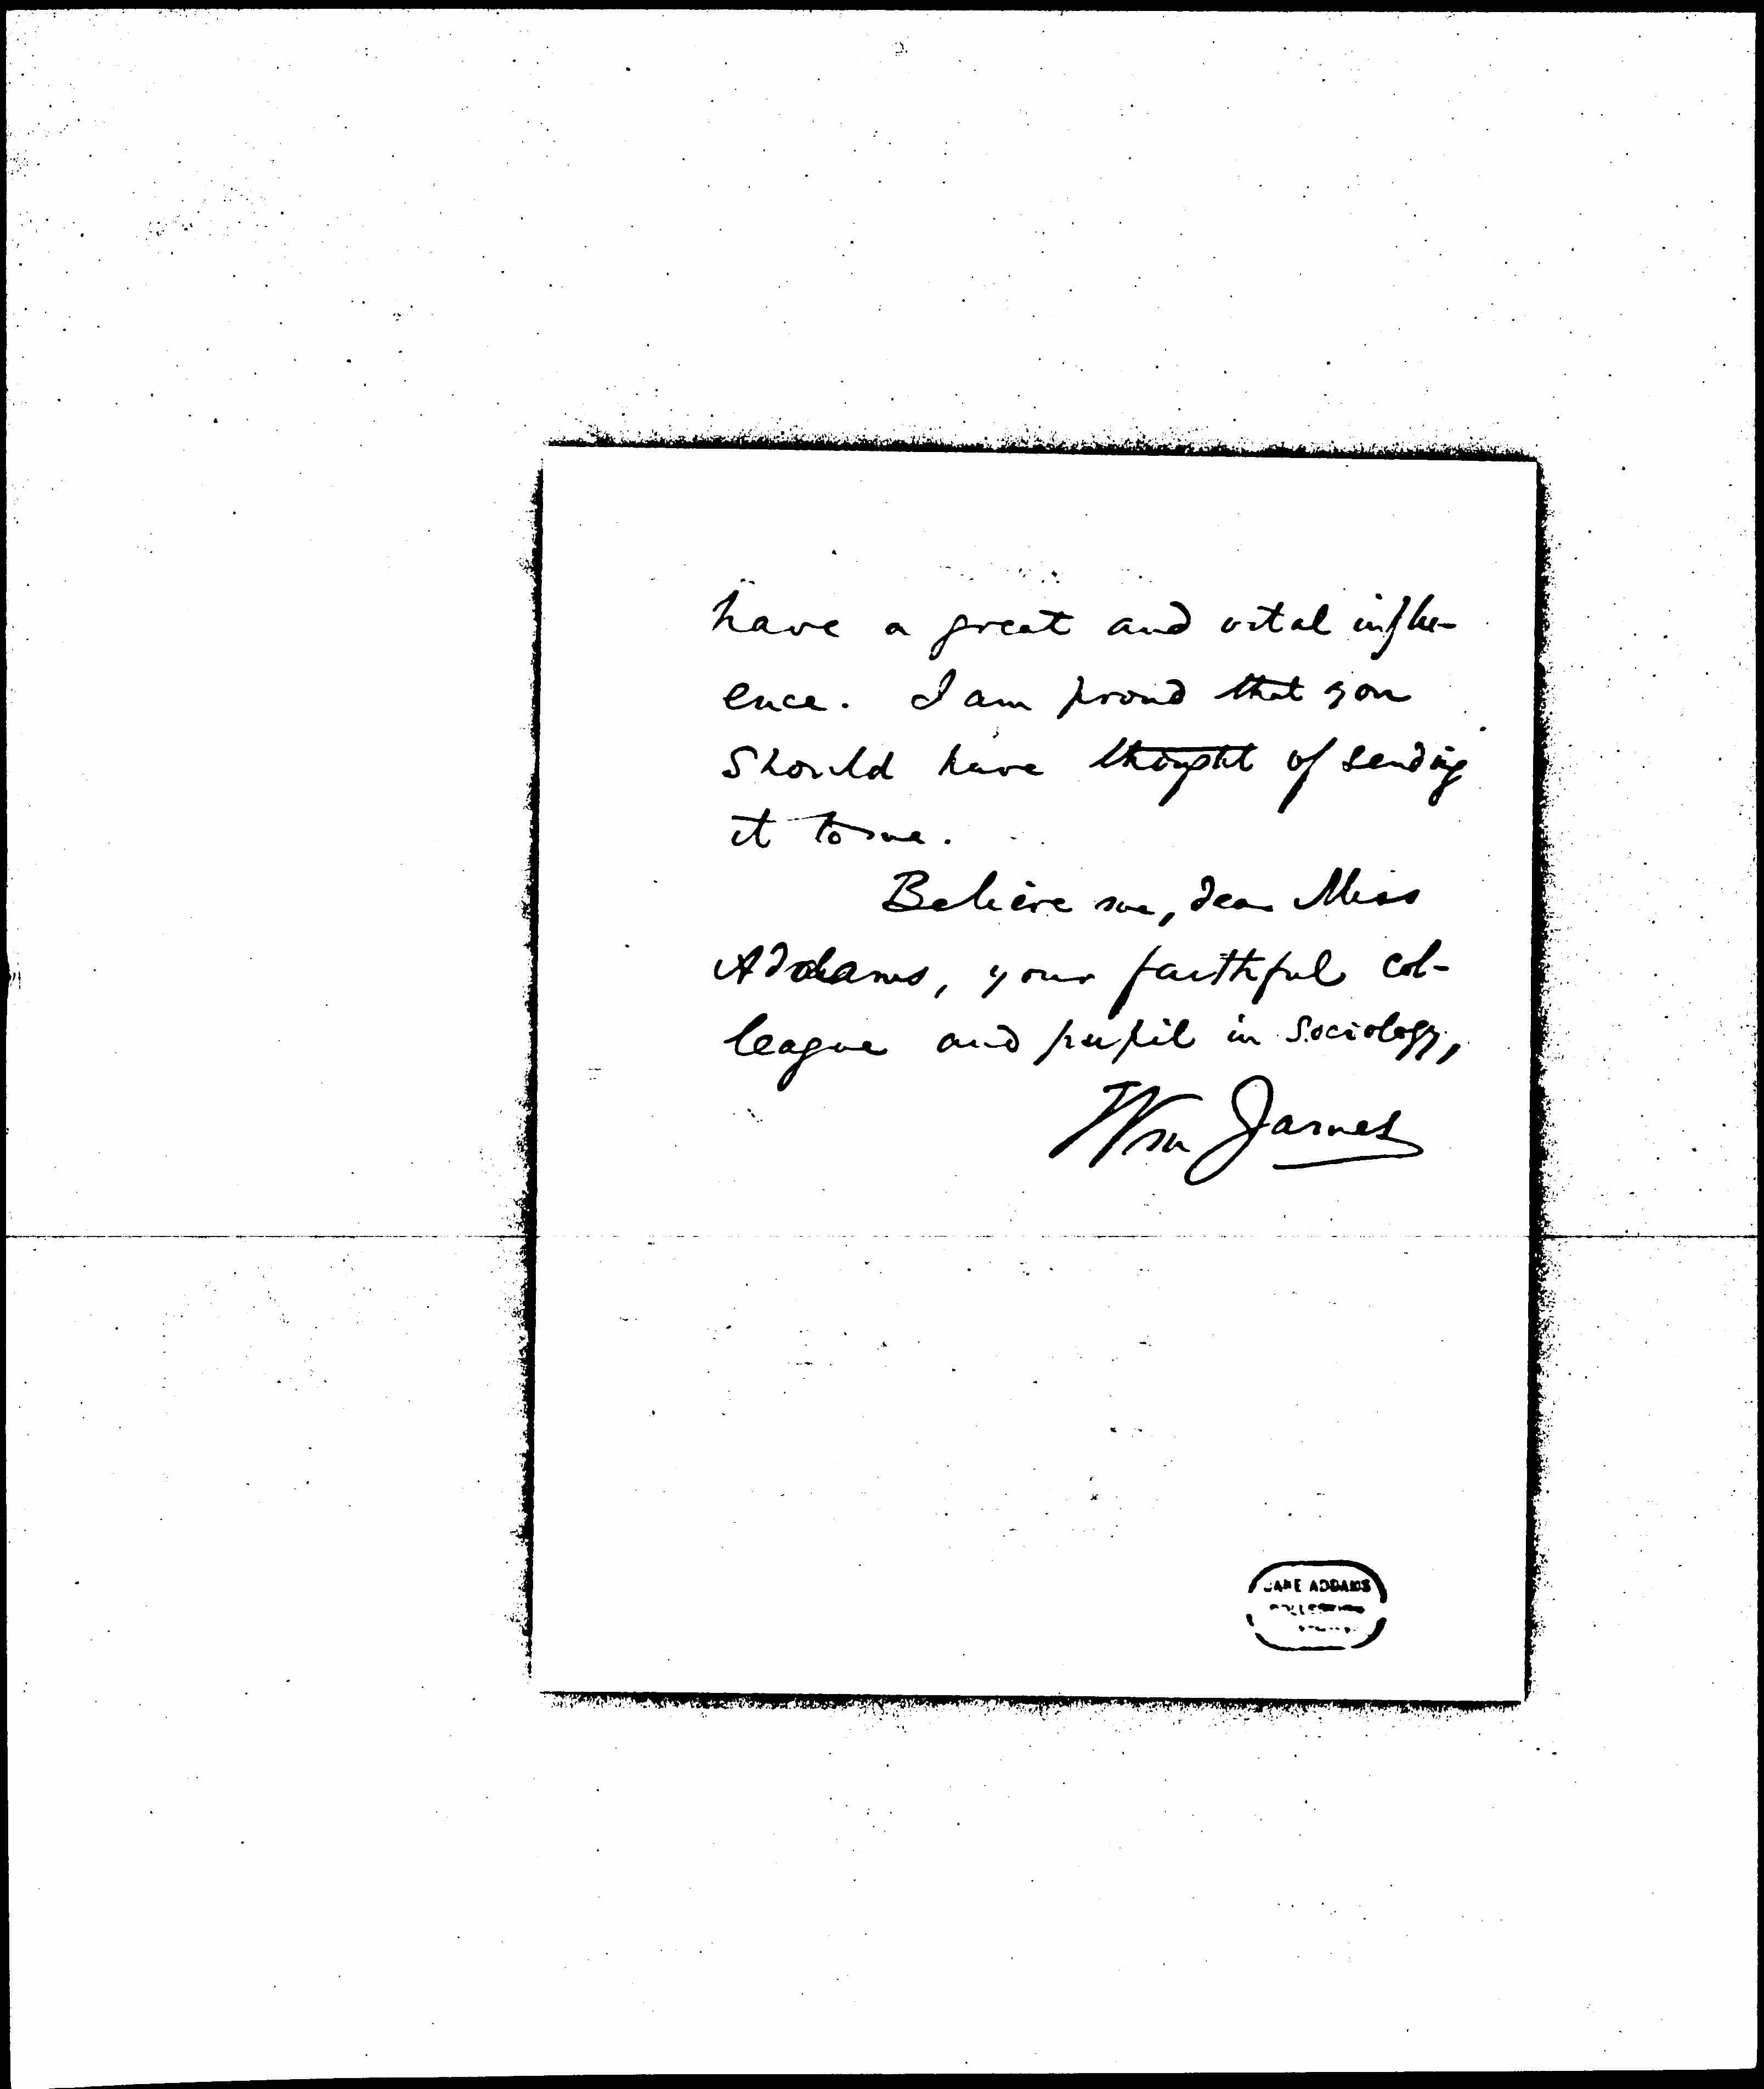 have a great and vital influ-
ence. I am proud that you
should have thought of sending
it to me.
Believe me, dear Miss
Addams, your faithful col-
league and pupil in Sociology,
Wm James
JANE ADDAMS
COLLECTION